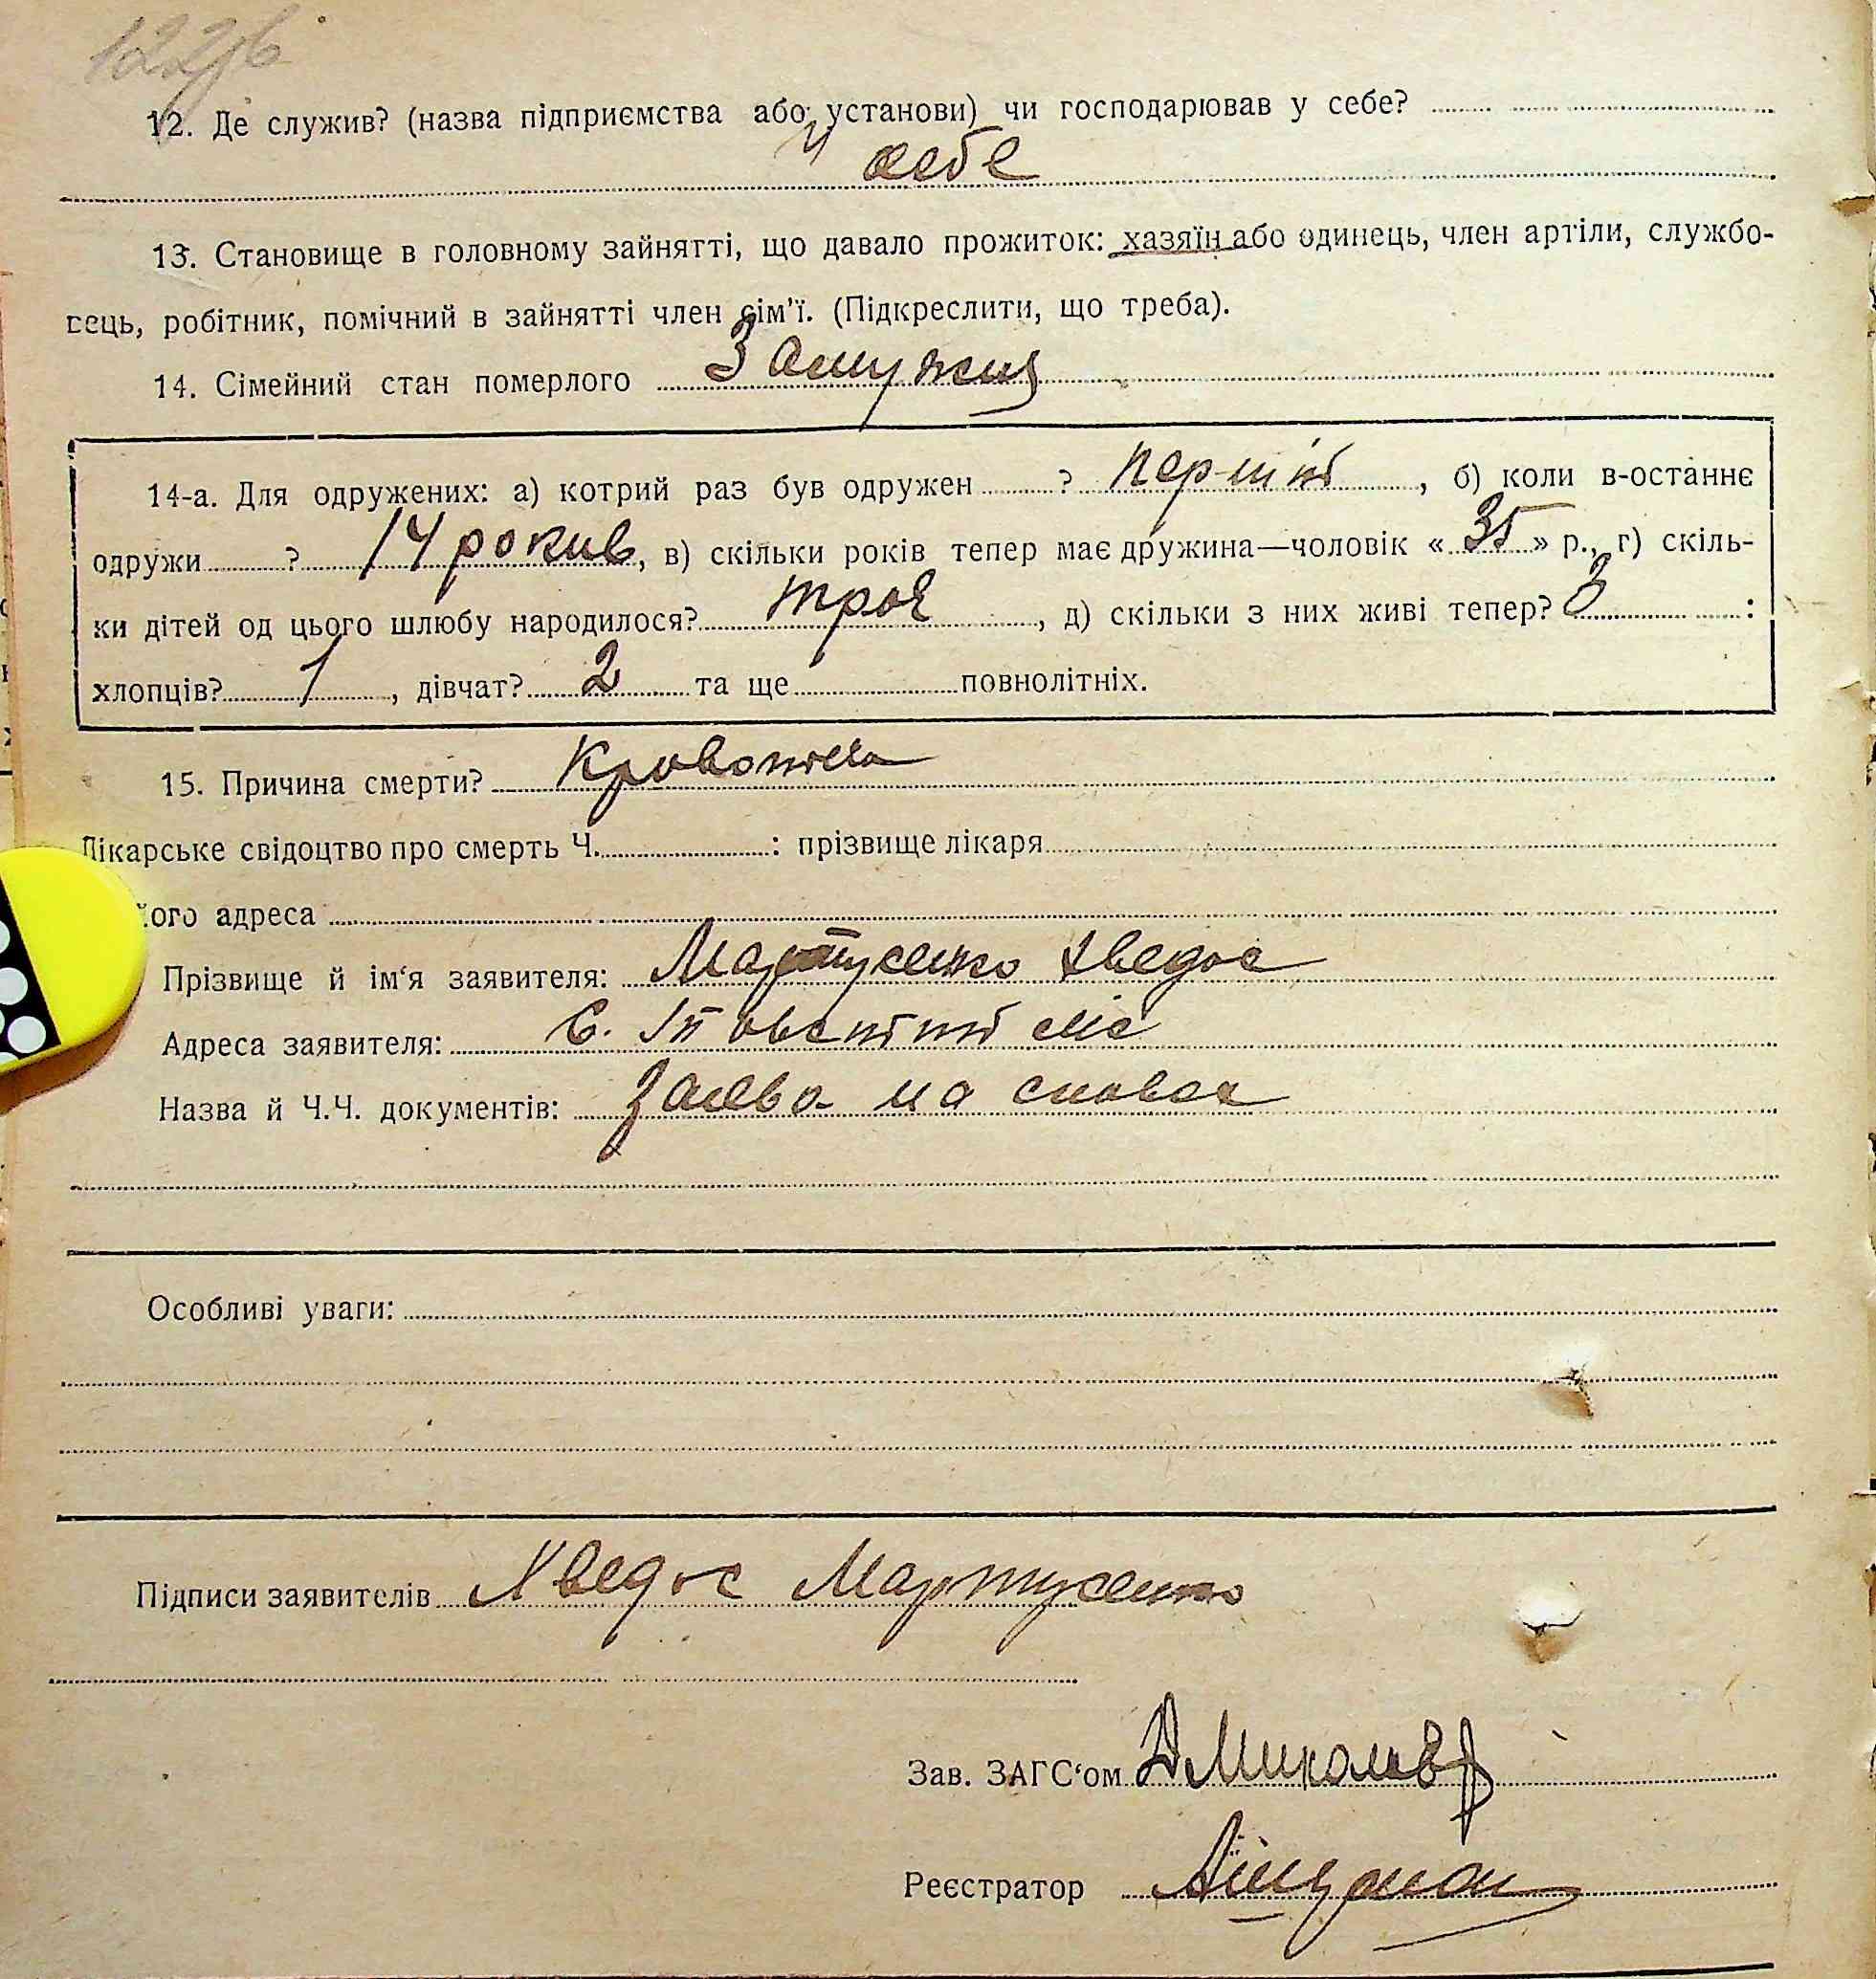 122зв
12. Де служив? (назва підприємства або установи) чи господарював у себе?
у себе
13. Становище в головному зайнятті, що давало прожиток: хазяїн або одинець, член артіли, службо-
вець, робітник, помічний в зайнятті член сім'ї. (Підкреслити, що треба).
14. Сімейний стан померлого Замужня
14-а. Для одружених: а) котрий раз був одружен ? першій, б) коли в-останнє
одружи ? 14 рокив, в) скільки років тепер має дружина—чоловік «35» р., г) скіль-
ки дітей од цього шлюбу народилося? троє, д) скільки з них живі тепер? 3:
хлопців? 1, дівчат? 2 та ще повнолітніх.
15. Причина смерти? Кровотеча
Лікарське свідоцтво про смерть Ч. : прізвище лікаря
його адреса
Прізвище й ім'я заявителя: Мартусенко Хведос
Адреса заявителя: С. Товстий ліс
Назва й Ч.Ч. документів: Заява на словах
Особливі уваги:
Підписи заявителів Хведос Мартусенко
Зав. ЗАГС'ом
Реєстратор